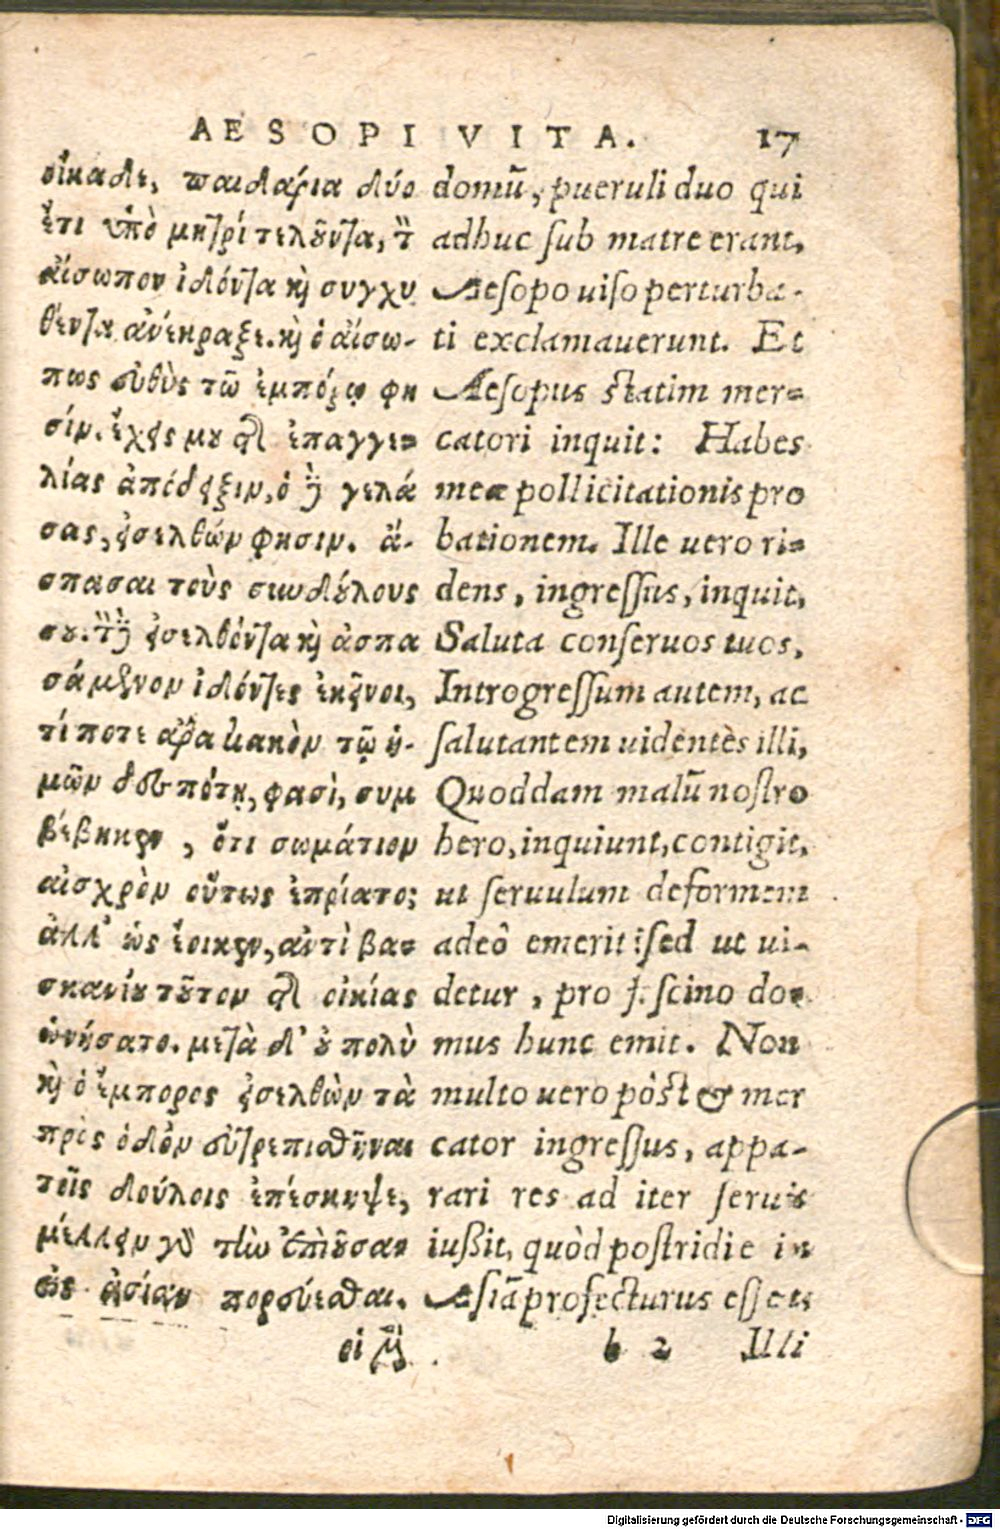 AESOPI VITA. 17
οἴκαδε, παιδάρια δύο
ἔτι ὑπὸ μητρί τελοῦντα, τ̀
αἴσωπον ἰδόντα καὶ συγχυ
θέντα ἀνέκραξε. καὶ ὁ αἴσω-
πος εὐθὺς τῶ ἐμπόρῳ φη
σίν. ἔχεις μου τῆς ἐπαγγε=
λίας ἀπόδειξιν, ὁ δὲ γελά
σας, εἰσελθών φησιν. ἄ-
σπασαι τοὺς συνδούλους
σου. τὸν δὲ εἰσελθόντα καὶ ἀσπα
σάμενον ἰδόντες ἐκεῖνοι,
τί ποτε ἄρα κακὸν τῷ ἡ-
μῶν δεσπότῃ, φασὶ, συμ
βέβηκεν, ὅτι σωμάτιον
αἰσχρὸν οὕτως ἐπρίατο;
ἀλλ' ὡς ἔοικεν, ἀντὶ βα=
σκανίου τοῦτον τῆς οἰκίας
ὠνήσατο. μετὰ δ' οὐ πολὺ
καὶ ὁ ἔμπορος εἰσελθὼν τὰ
πρὸς ὁδὸν εὐτρεπισθῆναι
τοῖς δούλοις ἐπέσκηψε,
μέλλειν γὸ τὴν ἐπιοῦσαν
εἰς ἀσίαν πορεύεσθαι.
οἱ μὲν
domū, pueruli duo qui
adhuc sub matre erant,
Aesopo uiso perturba-
ti exclamauerunt. Et
Aesopus statim mer=
catori inquit: Habes
meæ pollicitationis pro
bationem. Ille uero ri=
dens, ingressus, inquit,
Saluta conseruos tuos.
Introgressum autem, ac
salutantem uidentès illi,
Quoddam malū nostro
hero, inquiunt, contigit,
ut seruulum deformem
adeò emerit: sed ut ui-
detur, pro fascino do=
mus hunc emit. Non
multo uero pòst & mer
cator ingressus, appa-
rari res ad iter seruis
iussit, quòd postridie in
Asiā profecturus esset.
b 2 Illi
Digitalisierung gefördert durch die Deutsche Forschungsgemeinschaft - DFG